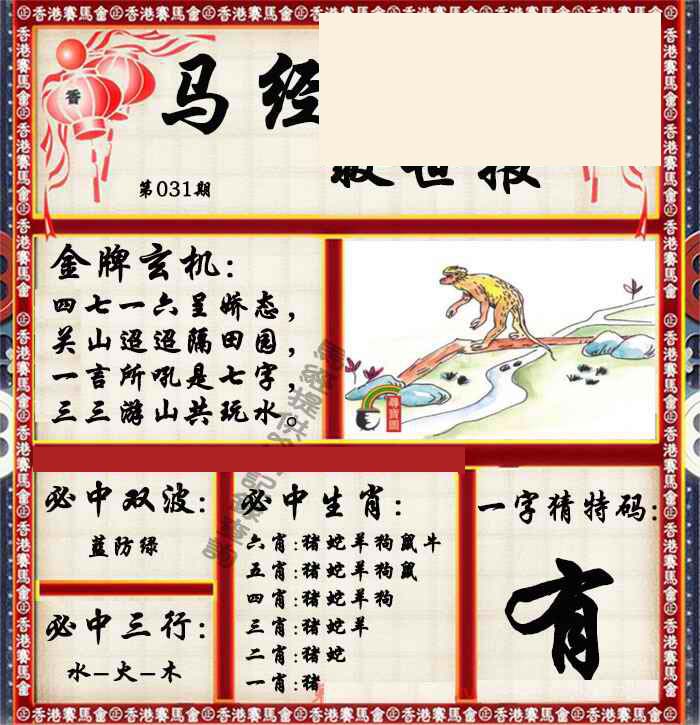 香港賽馬會
香
马经
救世报
第031期
金牌玄机:
四七一六呈娇态，
关山迢迢隔田园，
一言所吼是七字，
三三游山共玩水。
尋寶圖
必中双波:
蓝防绿
必中三行:
水-火-木
必中生肖:
六肖:猪蛇羊狗鼠牛
五肖:猪蛇羊狗鼠
四肖:猪蛇羊狗
三肖:猪蛇羊
二肖:猪蛇
一肖:猪
一字猜特码:
有